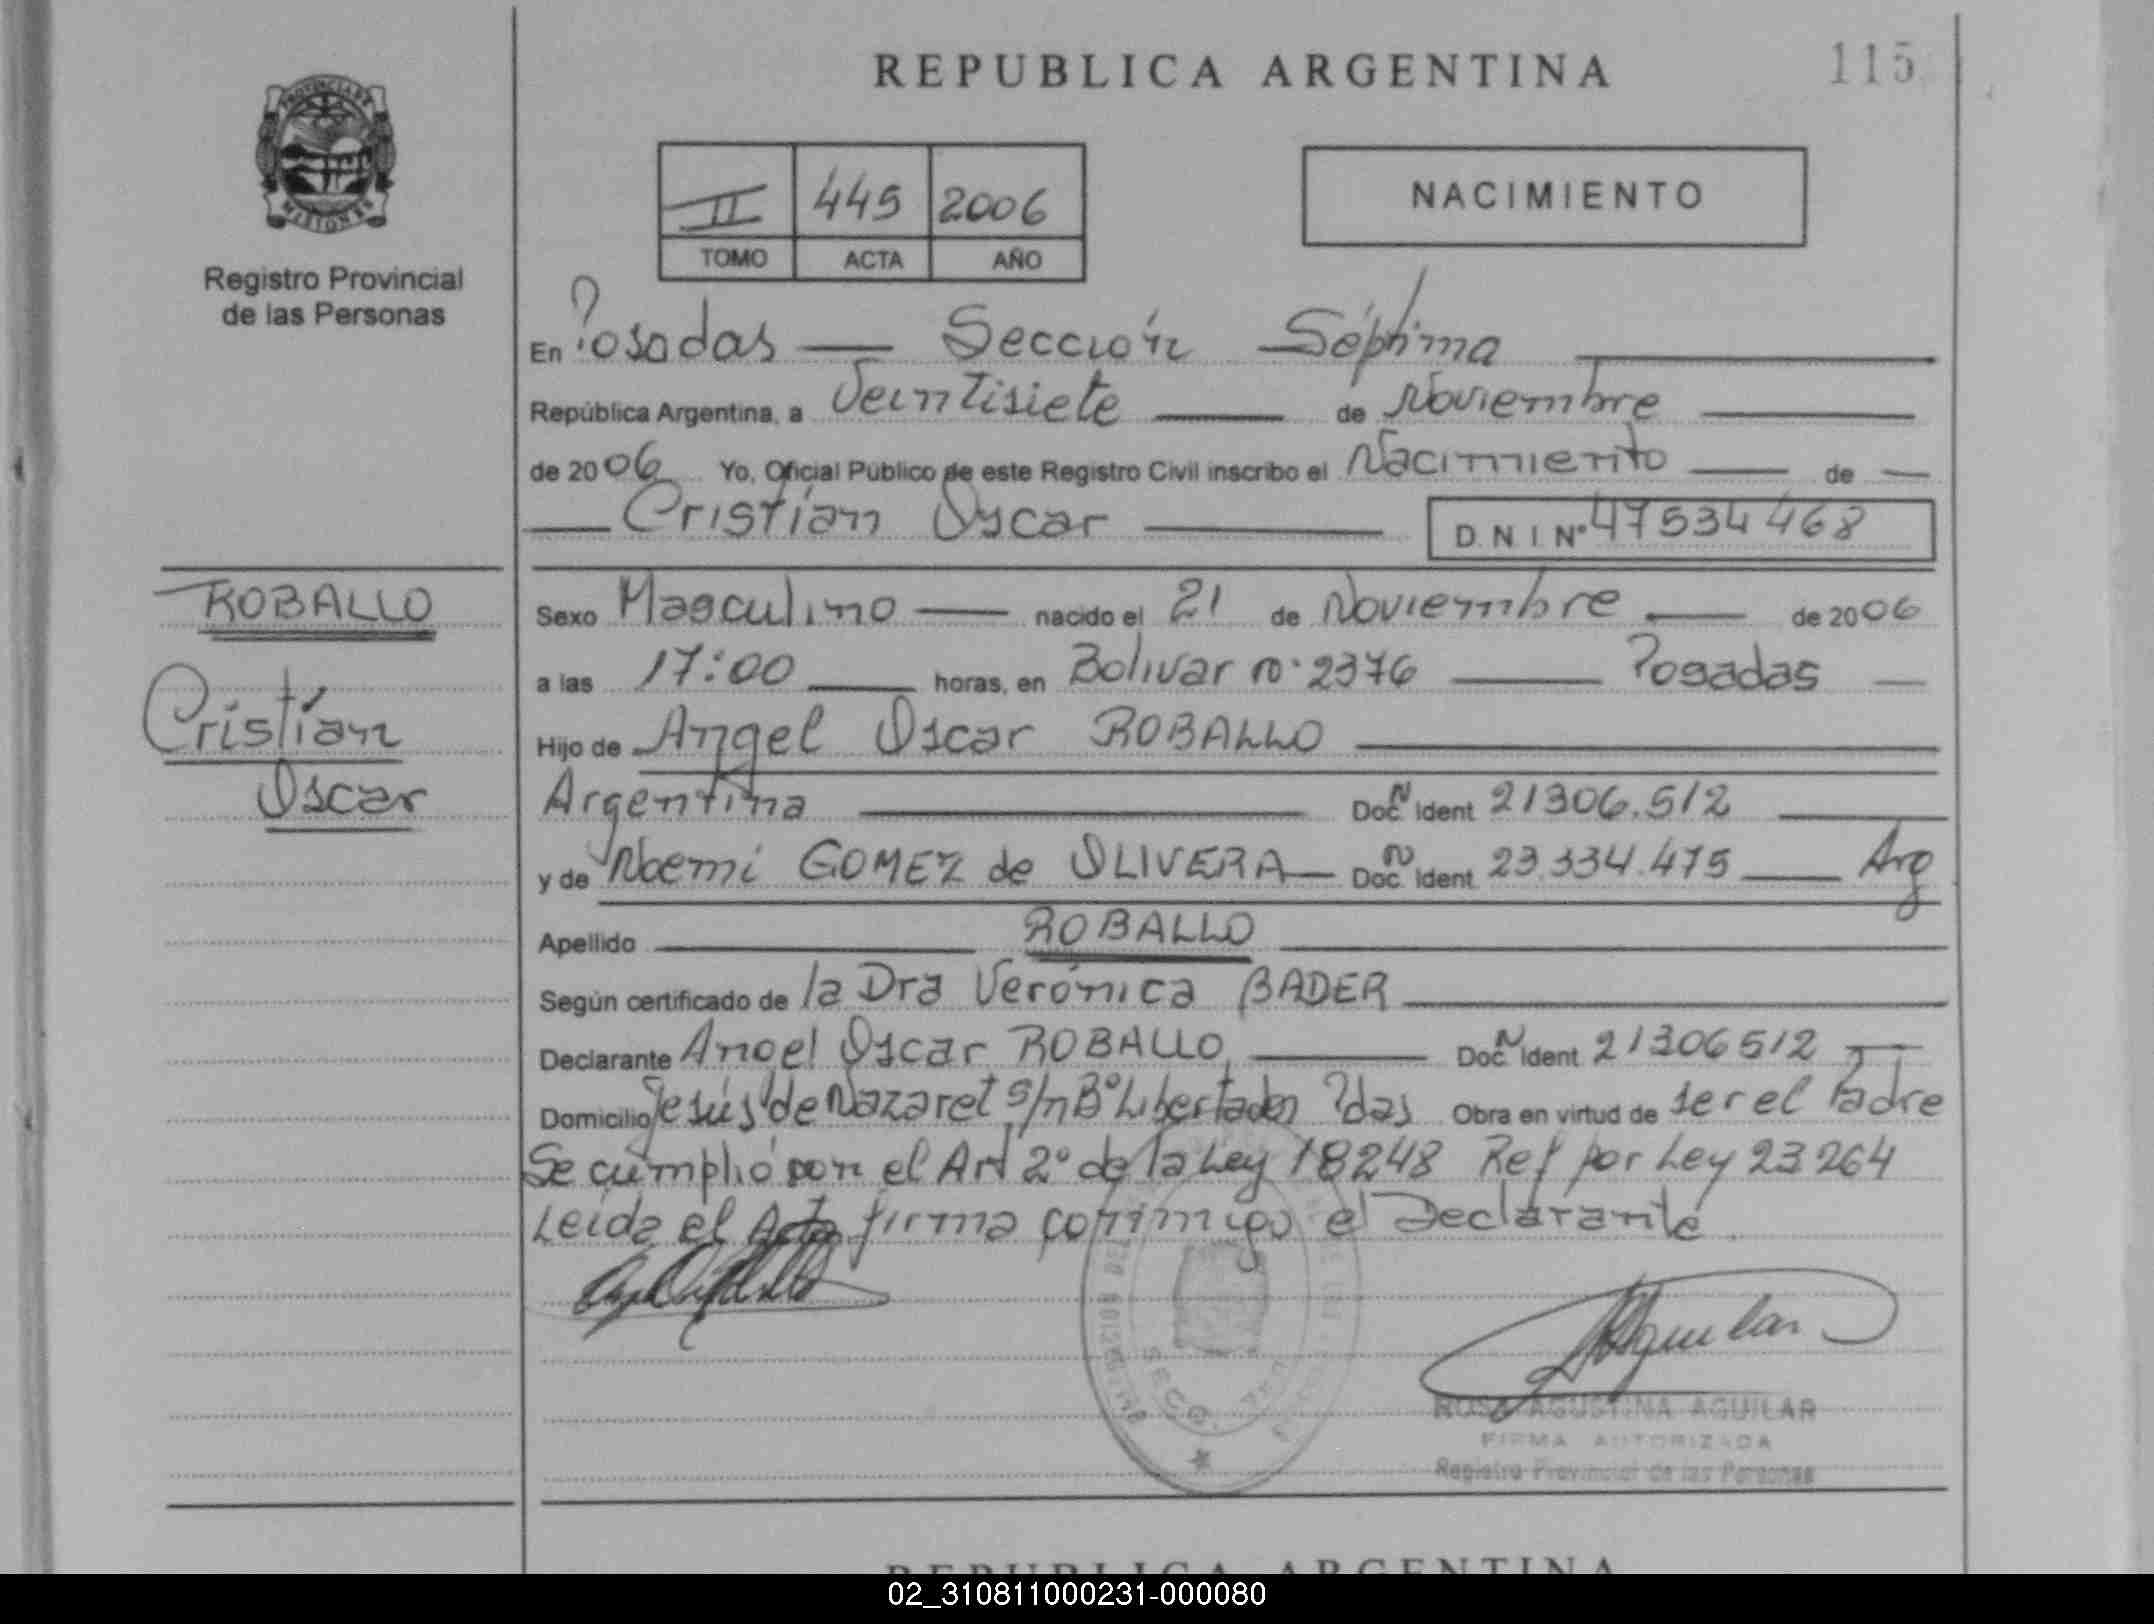 REPUBLICA ARGENTINA
115
PROVINCIA DE
MISIONES
Registro Provincial
de las Personas
II 445 2006
TOMO ACTA AÑO
NACIMIENTO
En Posadas — Sección Séptima
República Argentina, a Veintisiete — de Noviembre
de 2006 Yo, Oficial Público de este Registro Civil inscribo el Nacimiento — de —
— Cristían Oscar — D.N.I.Nº 47534468
ROBALLO
Cristían
Oscar
Sexo Masculino — nacido el 21 de Noviembre — de 2006
a las 17:00 — horas, en Bolivar nº 2376 — Posadas —
Hijo de Angel Oscar ROBALLO
Argentina — Doc. N Ident 21306.512
y de Noemi GOMEZ de OLIVERA — Doc. N Ident. 23.334.475 — Arg
Apellido — ROBALLO
Según certificado de la Dra Verónica BADER
Declarante Angel Oscar ROBALLO, — Doc. N Ident 21306512 —
Domicilio Jesús de Nazaret s/n Bº Libertador Pdas Obra en virtud de ser el Padre
Se cumplió con el Art 2º de la Ley 18248 Ref por Ley 23264
Leida el Acta firma conmigo el Declarante
Aguilar
ROSA AGUSTINA AGUILAR
FIRMA AUTORIZADA
Registro Provincial de las Personas
REPUBLICA ARGENTINA
02_310811000231-000080